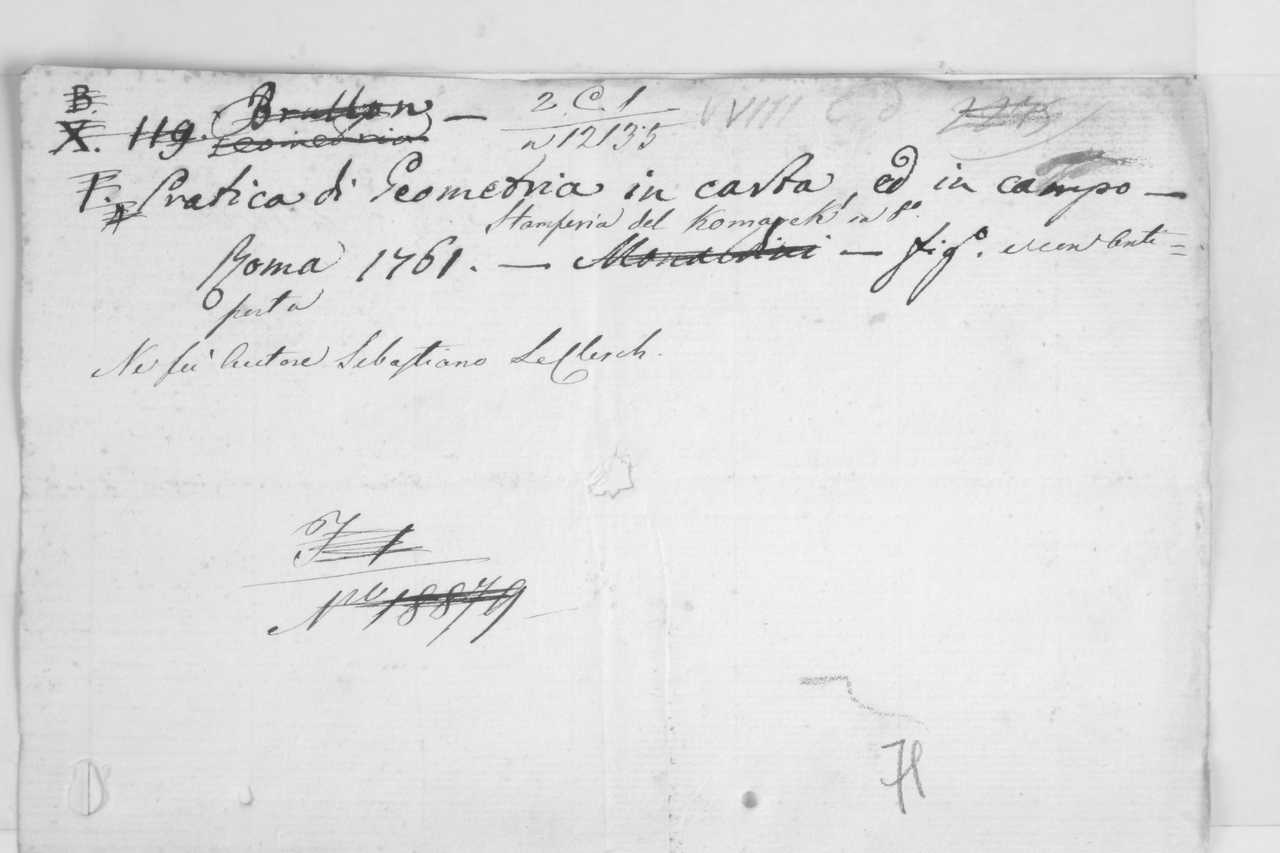 B.
X. 119. Brutton — 2. C. 1
Geometria n 12135
F. Pratica di Geometria in carta, ed in campo —
Stamperia del Komarek in 8º.
Roma 1761. — Monaldini — fig.º. e con Anti=
porta
Ne fu Autore Sebastiano LeClerch.
F 1
Nº 18879